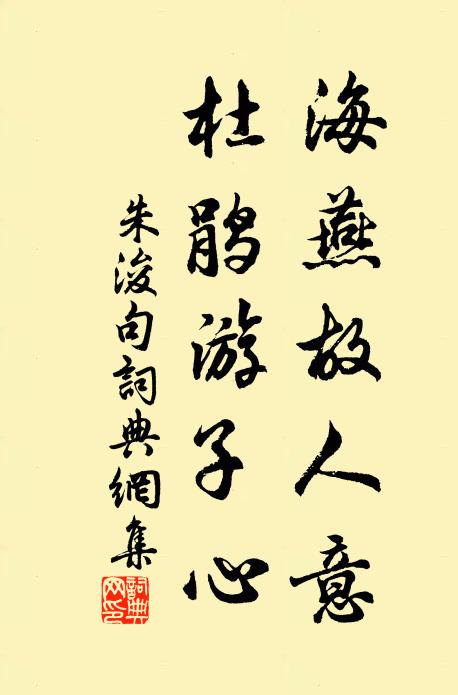 海燕故人意
杜鹃游子心
朱浚句詞典網集
詞典網印